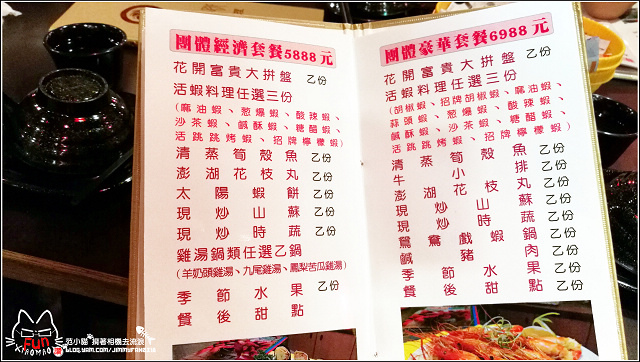 團體經濟套餐5888元
花開富貴大拼盤 乙份
活蝦料理任選三份
(麻油蝦、葱爆蝦、酸辣蝦、
沙茶蝦、鹹酥蝦、糖醋蝦、
活跳跳烤蝦、招牌檸檬蝦)
清蒸筍殼魚 乙份
澎湖花枝丸 乙份
太陽蝦餅 乙份
現炒山蘇 乙份
現炒時蔬 乙份
雞湯鍋類任選乙鍋
(羊奶頭雞湯、九尾雞湯、鳳梨苦瓜雞湯)
季節水果 乙份
餐後甜點
團體豪華套餐6988元
花開富貴大拼盤 乙份
活蝦料理任選三份
(胡椒蝦、招牌胡椒蝦、麻油蝦、
蒜頭蝦、葱爆蝦、酸辣蝦、
鹹酥蝦、沙茶蝦、糖醋蝦、
活跳跳烤蝦、招牌檸檬蝦)
清蒸筍殼魚 乙份
牛小排 乙份
澎湖花枝丸 乙份
現炒山蘇 乙份
現炒時蔬 乙份
鴛鴦戲蝦鍋 乙份
鹹豬肉 乙份
季節水果 乙份
餐後甜點
FUN
范小貓 揹著相機去流浪